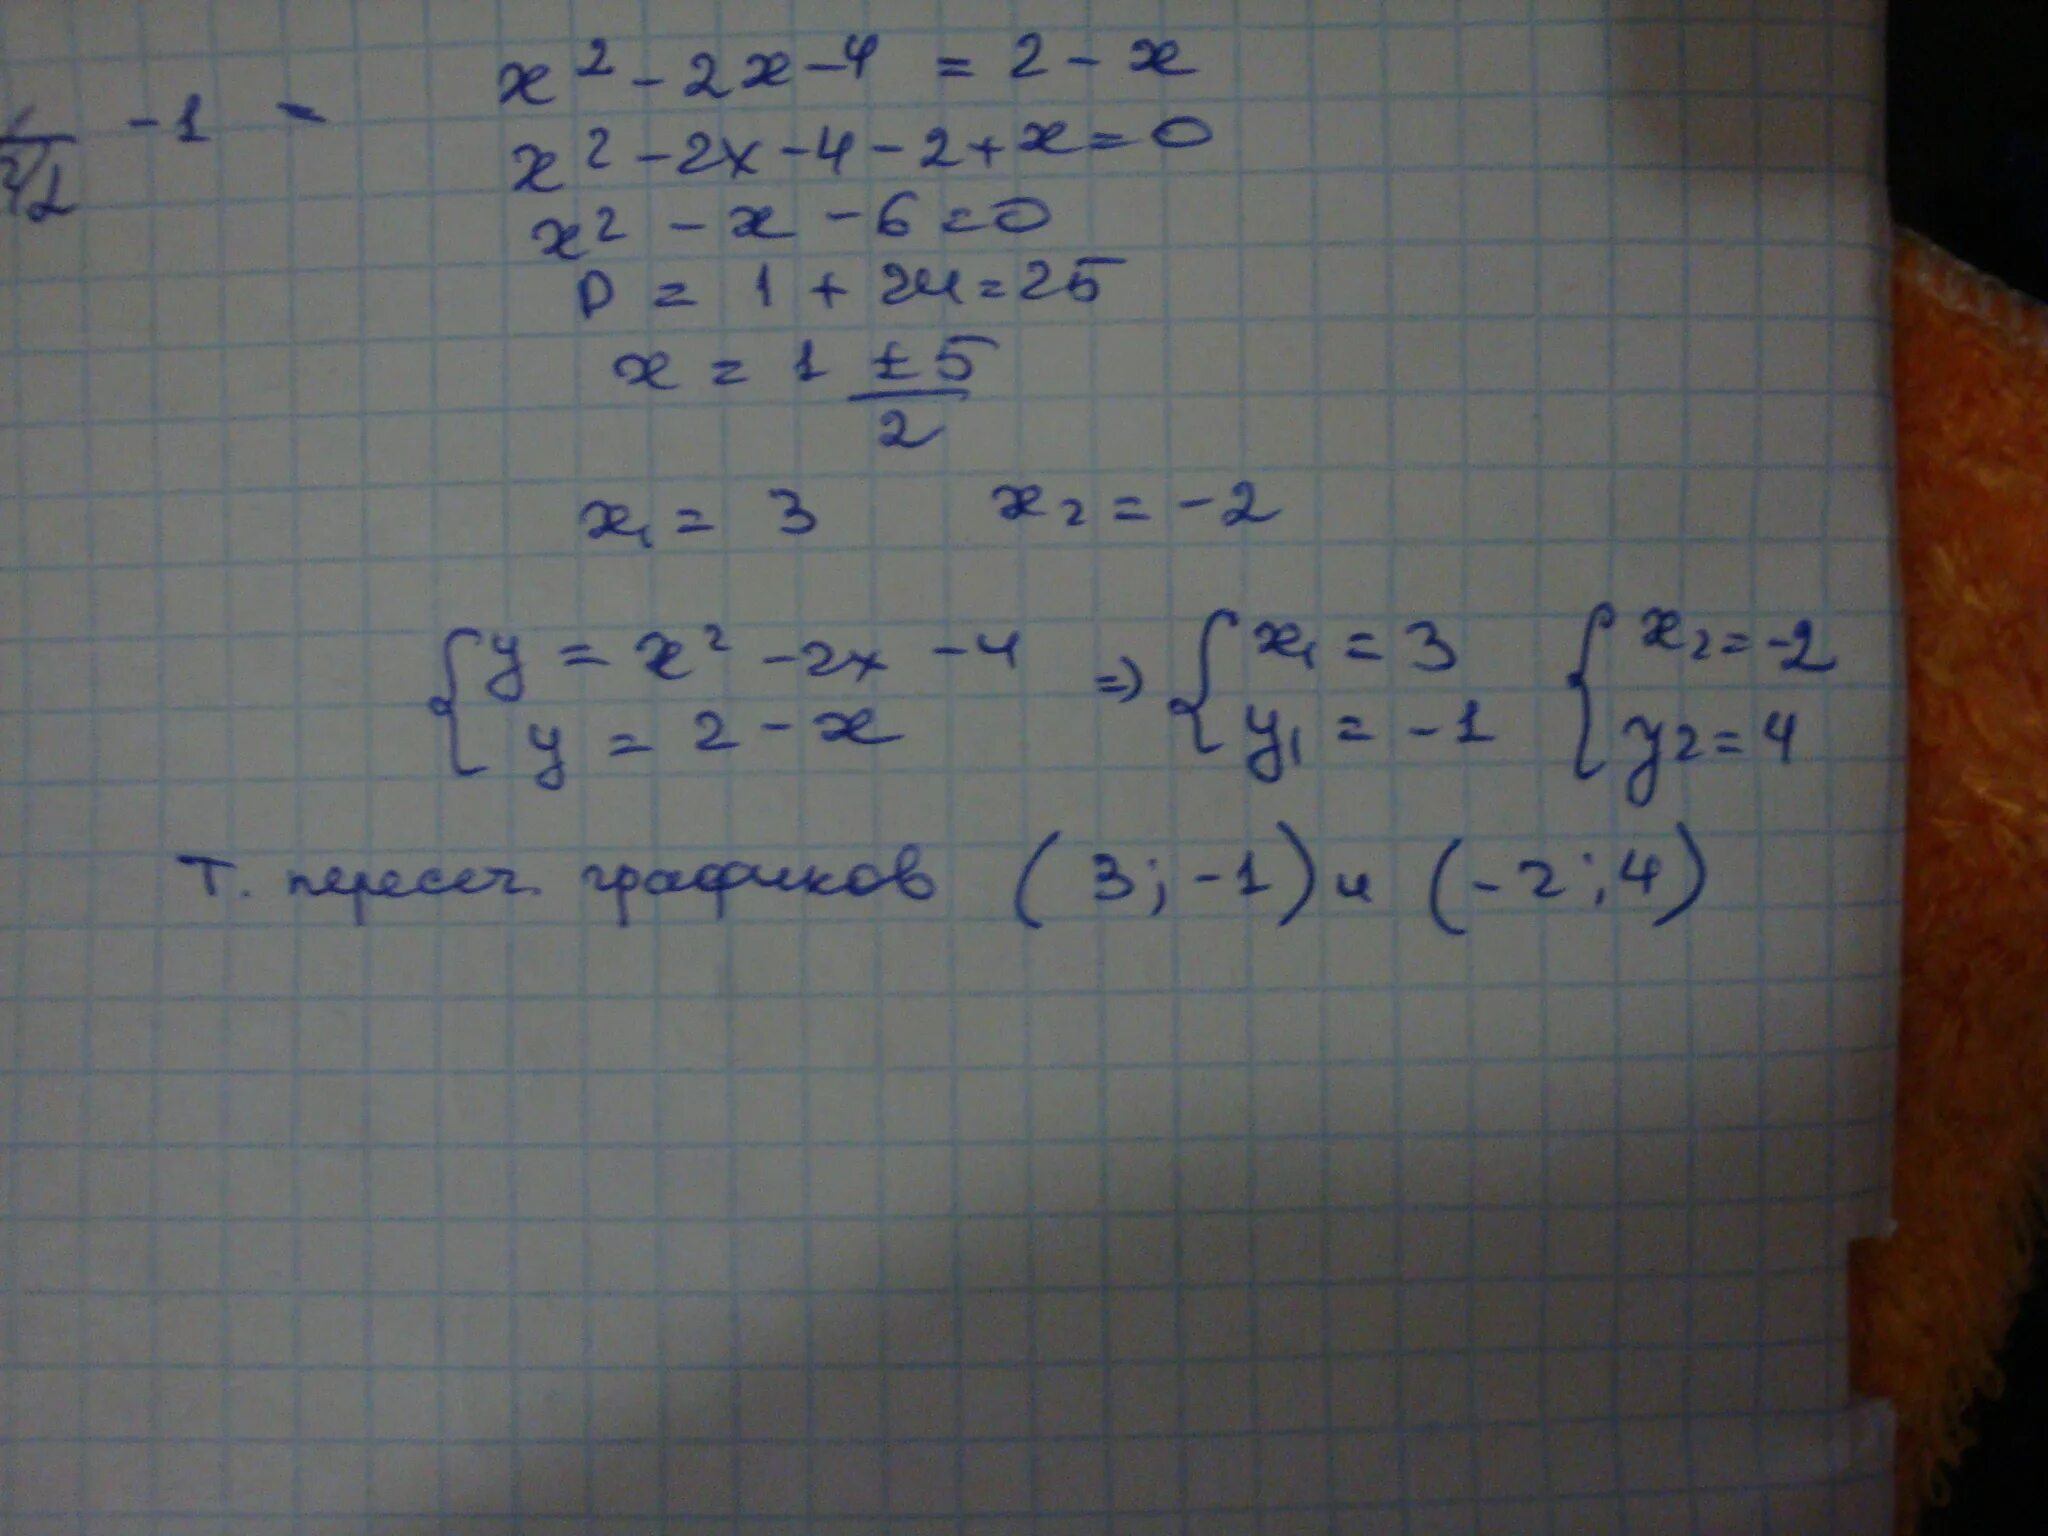 x² - 2x - 4 = 2 - x
- 1 -
x² - 2x - 4 - 2 + x = 0
x² - x - 6 = 0
D = 1 + 24 = 25
x = 1 ± 5
2
x₁ = 3 x₂ = -2
{ y = x² - 2x - 4 => { x₁ = 3 { x₂ = -2
y = 2 - x y₁ = -1 y₂ = 4
Т. пересеч. графиков (3; -1) и (-2; 4)